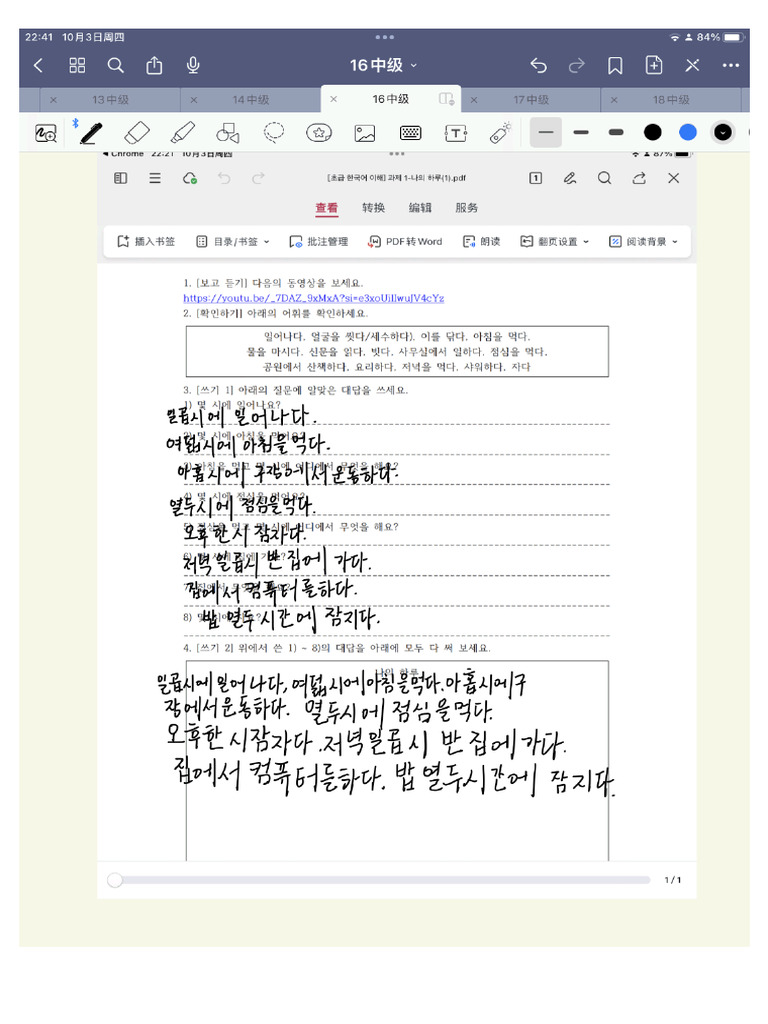 22:41 10月3日周四
84%
16中级
13中级
14中级
16中级
17中级
18中级
Chrome 22:21 10月3日周四
87%
[초급 한국어 이해] 과제 1-나의 하루(1).pdf
1
查看 转换 编辑 服务
插入书签 目录/书签 批注管理 PDF转Word 朗读 翻页设置 阅读背景
1. [보고 듣기] 다음의 동영상을 보세요.
https://youtu.be/_7DAZ_9xMxA?si=e3xoUiIlwuJV4cYz
2. [확인하기] 아래의 어휘를 확인하세요.
일어나다, 얼굴을 씻다/세수하다, 이를 닦다, 아침을 먹다,
물을 마시다, 신문을 읽다, 빗다, 사무실에서 일하다, 점심을 먹다,
공원에서 산책하다, 요리하다, 저녁을 먹다, 샤워하다, 자다
3. [쓰기 1] 아래의 질문에 알맞은 대답을 쓰세요.
1) 몇 시에 일어나요?
일곱시에 일어나다.
2) 몇 시에 아침을 먹어요?
여덟시에 아침을 먹다.
3) 아침을 먹고 몇 시에 어디에서 무엇을 해요?
아홉시에 구장에서 운동하다.
4) 몇 시에 점심을 먹어요?
열두시에 점심을 먹다.
5) 점심을 먹고 몇 시에 어디에서 무엇을 해요?
오후 한 시 잠자다.
6) 몇 시에 집에 가요?
저녁 일곱시 반 집에 가다.
7) 집에서 무엇을 해요?
집에서 컴퓨터를하다.
8) 몇 시에
밥 열두시간에 잠지다.
4. [쓰기 2] 위에서 쓴 1) ~ 8)의 대답을 아래에 모두 다 써 보세요.
나의 하루
일곱시에 일어나다, 여덟시에 아침을 먹다. 아홉시에 구
장에서 운동하다. 열두시에 점심을 먹다.
오후 한 시잠자다. 저녁 일곱시 반 집에 가다.
집에서 컴퓨터를하다. 밥 열두시간에 잠지다.
1/1